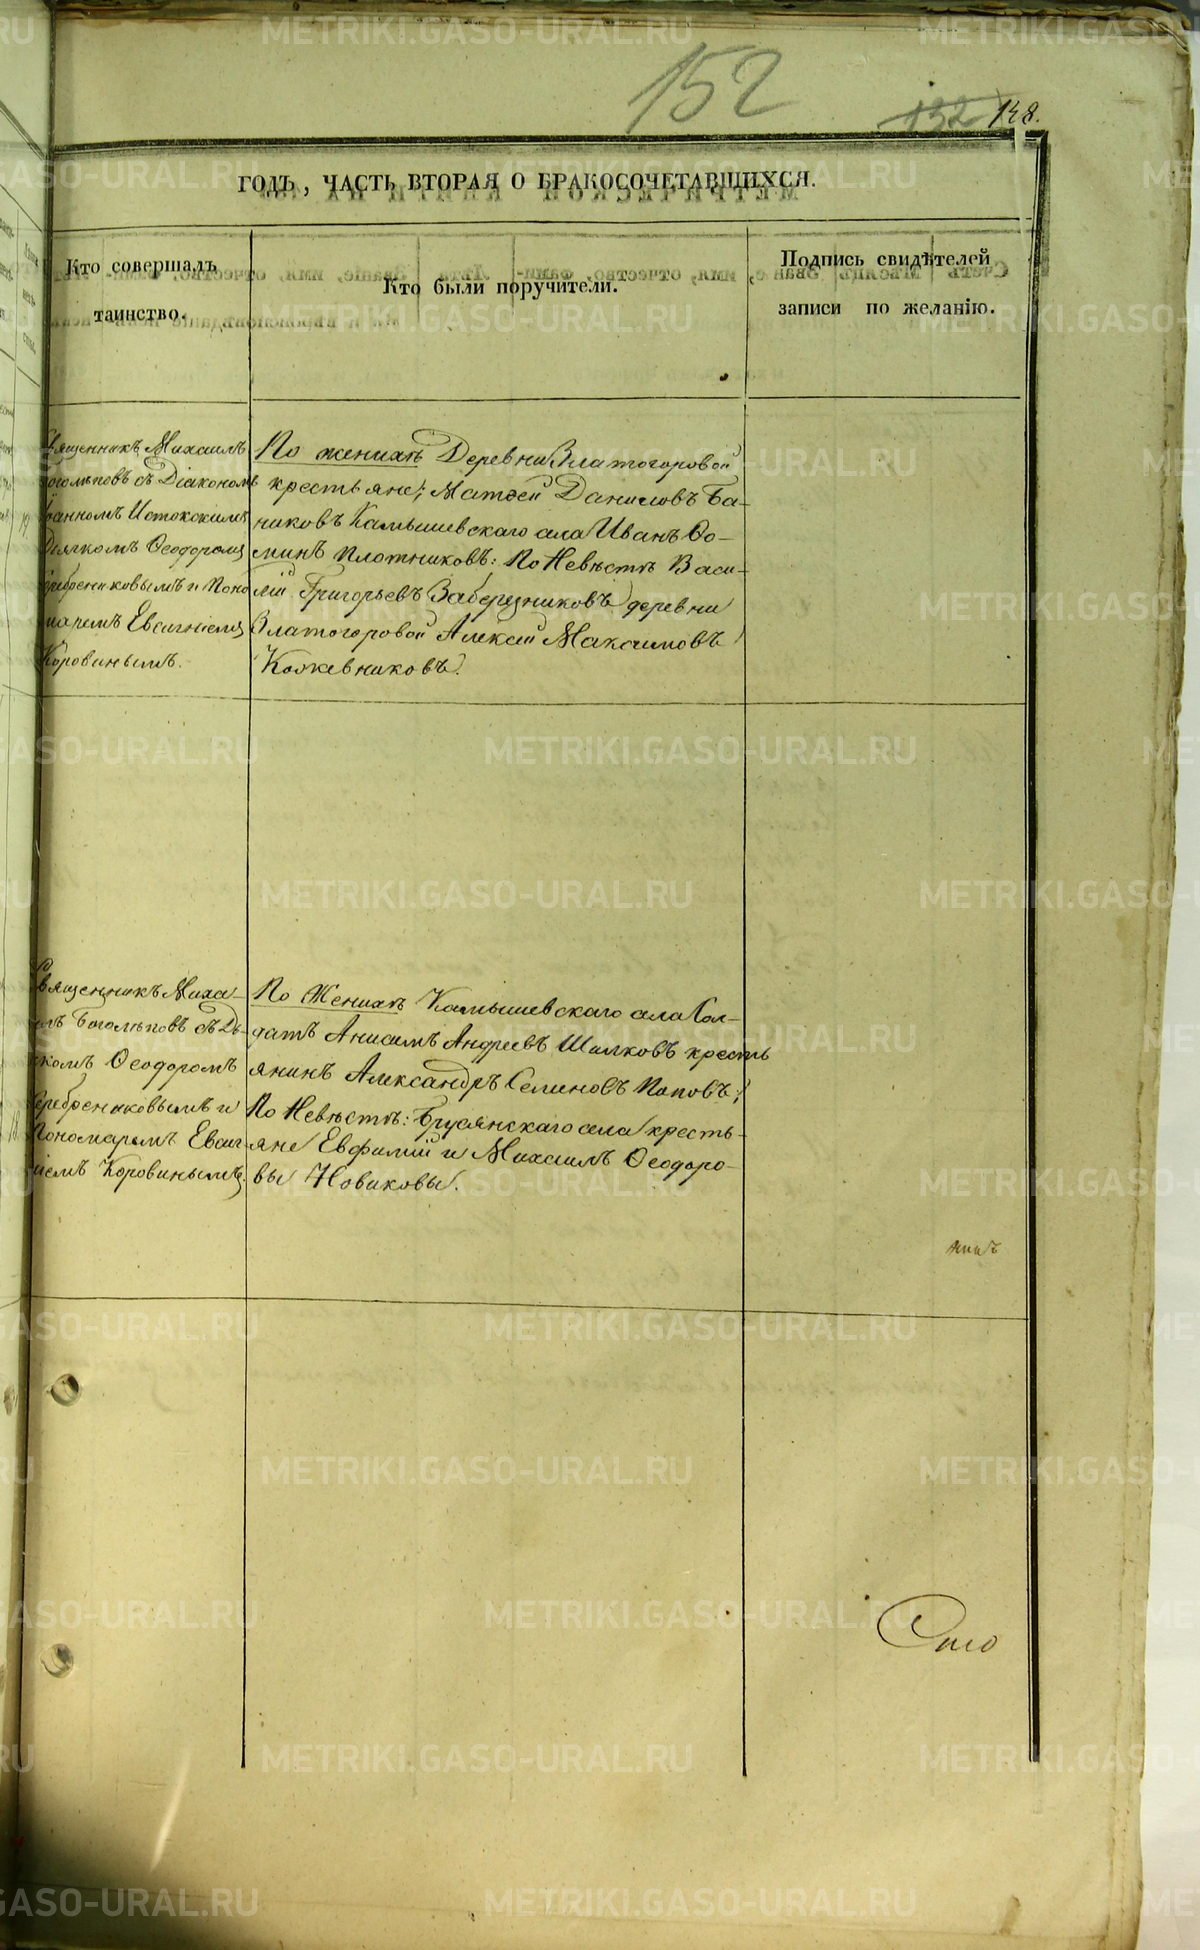 152
132 148.
ГОДЪ, ЧАСТЬ ВТОРАЯ О БРАКОСОЧЕТАВШИХСЯ.
Кто совершалъ
таинство.
Кто были поручители.
Подпись свидѣтелей
записи по желанію.
Священникъ Михаилъ
Боголѣповъ съ Діакономъ
Іоанномъ Истокскимъ
Дьячкомъ Ѳеодоромъ
Серебрениковымъ и Поно
маремъ Евсигніемъ
Коровинымъ.
По женихѣ Деревни Златогоровой
крестьяне; Матѳей Даниловъ Ба-
никовъ Камышевскаго села Иванъ Ѳо-
минъ Плотниковъ: По Невѣстѣ Васи-
лій Григорьевъ Заберезниковъ деревни
Златогоровой Алексѣй Максимовъ
Кожевниковъ.
Священникъ Миха-
илъ Боголѣповъ съ Дья-
чкомъ Ѳеодоромъ
Серебрениковымъ и
Пономаремъ Евсиг-
ніемъ Коровинымъ.
По Женихѣ Камышевскаго села Сол-
датъ Анисимъ Андреевъ Шилковъ кресть
янинъ Александръ Семиновъ Поповъ;
По Невѣстѣ: Брусянскаго села кресть-
яне Евфимій и Михаилъ Ѳеодоро-
вы Новиковы.
METRIKI.GASO-URAL.RU